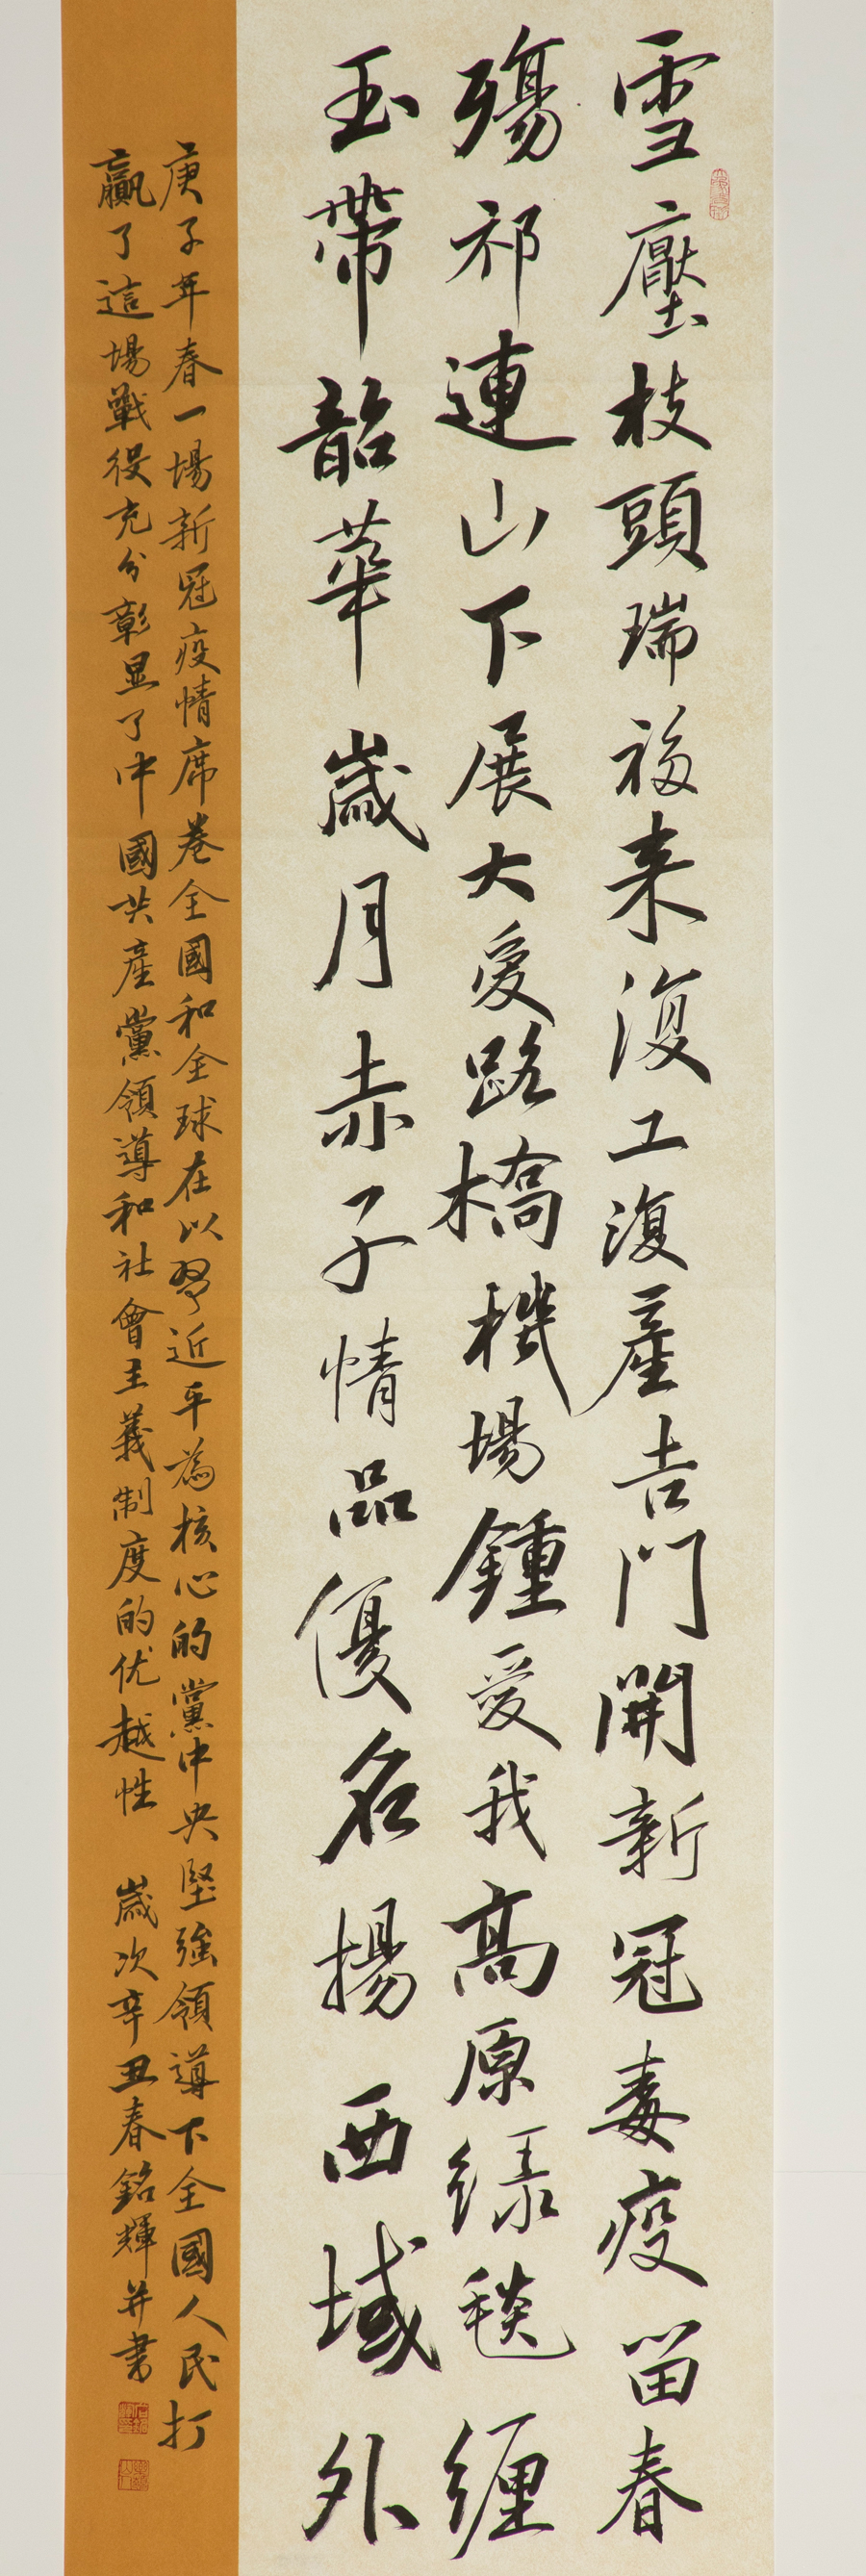 雪壓枝頭瑞福来復工復產吉門開新冠毒疫留春
殤祁連山下展大爱路橋機場鍾爱我高原绿毯纒
玉帶韶華歲月赤子情品優名揚西域外
庚子年春一場新冠疫情席卷全國和全球在以習近平為核心的黨中央堅強領導下全國人民打
贏了這場戰役充分彰显了中國共產黨領導和社會主義制度的优越性 歲次辛丑春銘輝并书